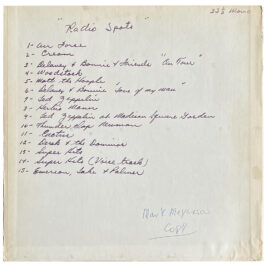 33⅓ Mono
"Radio Spots"
1- Air Force
2- Cream
3- Delaney & Bonnie & Friends "On Tour"
4- Woodstock
5- Mott the Hoople
6- Delaney & Bonnie "Sons of my man"
7- Led Zeppelin
8- Herbie Mann
9- Led Zeppelin at Madison Square Garden
10- Thunderclap Newman
11- Cactus
12- Derek & the Dominos
13- Super Hits
14- Super Hits (Voice track)
15- Emerson, Lake & Palmer
Copy